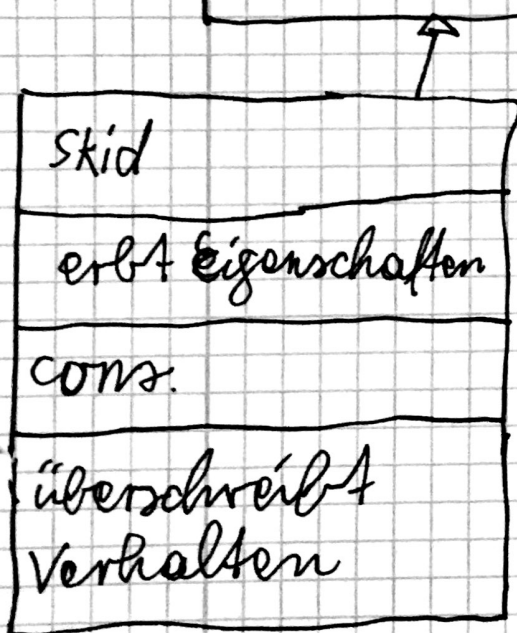 Skid
erbt Eigenschaften
cons.
überschreibt
Verhalten